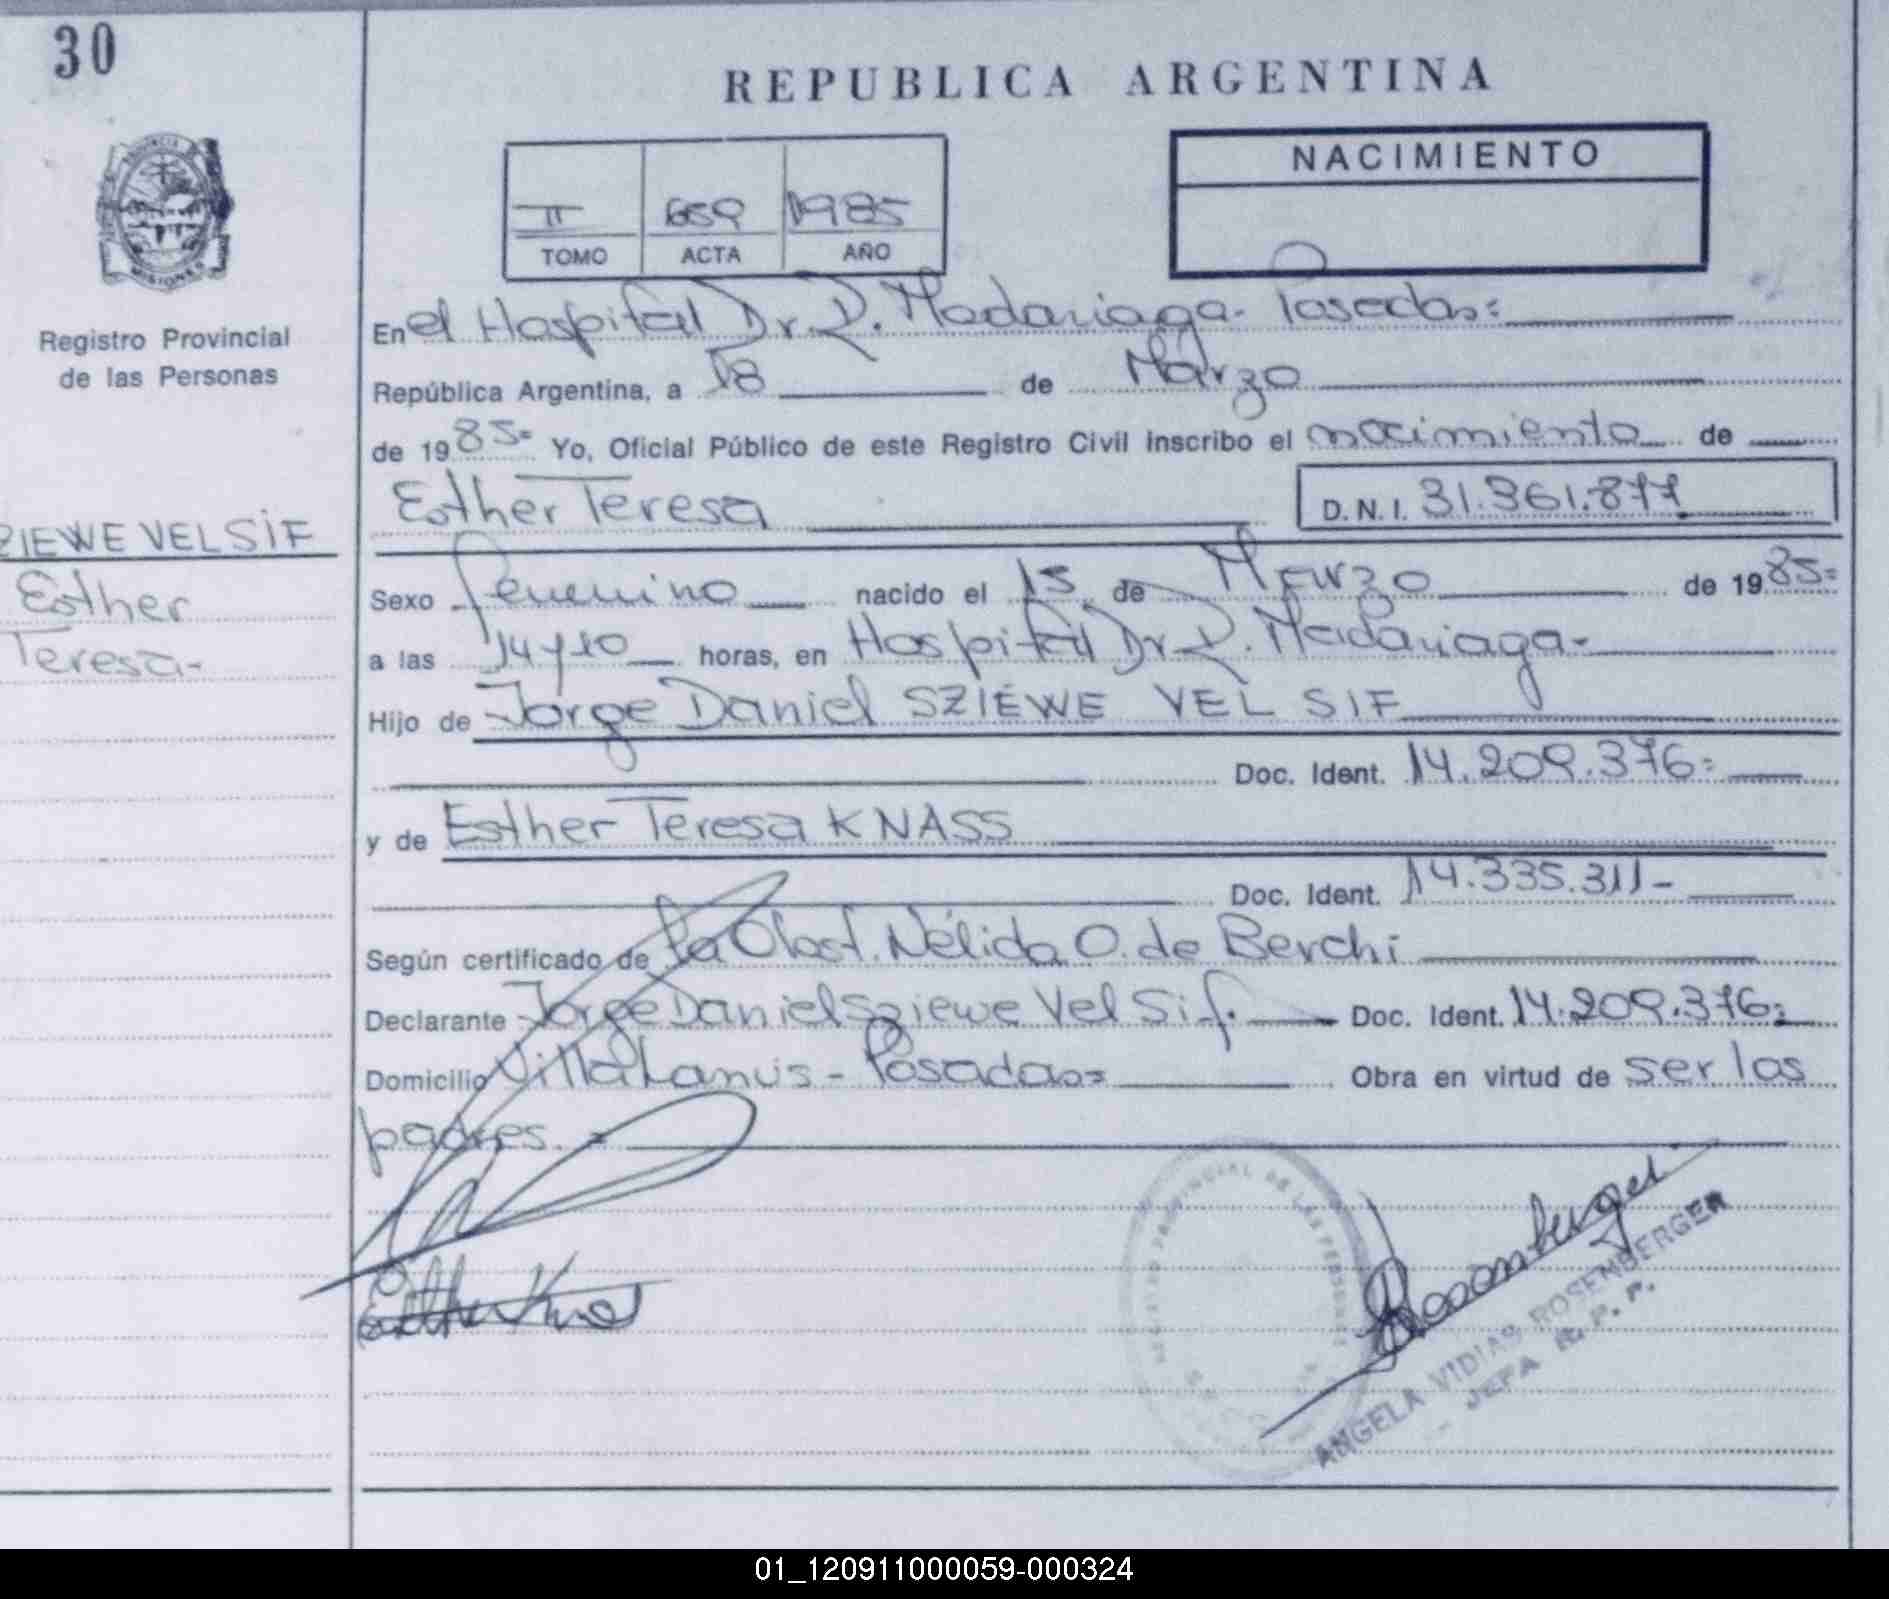 30
REPUBLICA ARGENTINA
NACIMIENTO
II 659 1985
TOMO ACTA AÑO
Registro Provincial
de las Personas
En el Hospital Dr. R. Madariaga - Posadas=
República Argentina, a 18 de Marzo
de 1985= Yo, Oficial Público de este Registro Civil inscribo el nacimiento de
Esther Teresa D.N.I. 31.361.877
SZIEWE VEL SIF
Esther
Teresa-
Sexo femenino nacido el 15 de Marzo de 1985=
a las 14 y 10 horas, en Hospital Dr. R. Madariaga-
Hijo de Jorge Daniel SZIEWE VEL SIF
Doc. Ident. 14.209.376=
y de Esther Teresa KNASS
Doc. Ident. 14.335.311-
Según certificado de la Obst. Nélida O. de Berchi
Declarante Jorge Daniel Sziewe Vel Sif. Doc. Ident. 14.209.376=
Domicilio Villa Lanús - Posadas= Obra en virtud de ser los
padres. =
REGISTRO PROVINCIAL DE LAS PERSONAS
Rosenberger
ANGELA VIDIAS ROSENBERGER
- JEFA R. P. P.
01_120911000059-000324